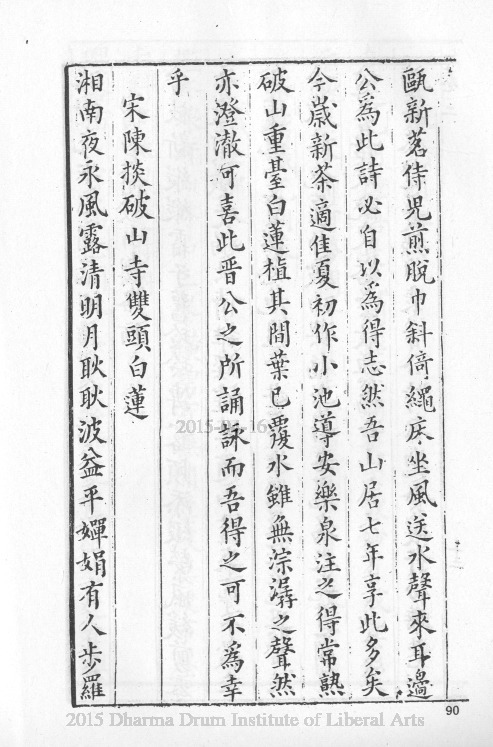 甌新茗侍児煎脫巾斜倚繩床坐風送水聲來耳邊
公爲此詩必自以爲得志然吾山居七年享此多矣
今歲新茶適佳夏初作小池導安樂泉注之得常熟
破山重臺白蓮植其間葉已覆水雖無淙潺之聲然
亦澄澈可喜此晋公之所誦詠而吾得之可不爲幸
乎
宋陳掞破山寺雙頭白蓮
湘南夜永風露清明月耿耿波益平嬋娟有人步羅
90
2015-04-16
2015 Dharma Drum Institute of Liberal Arts